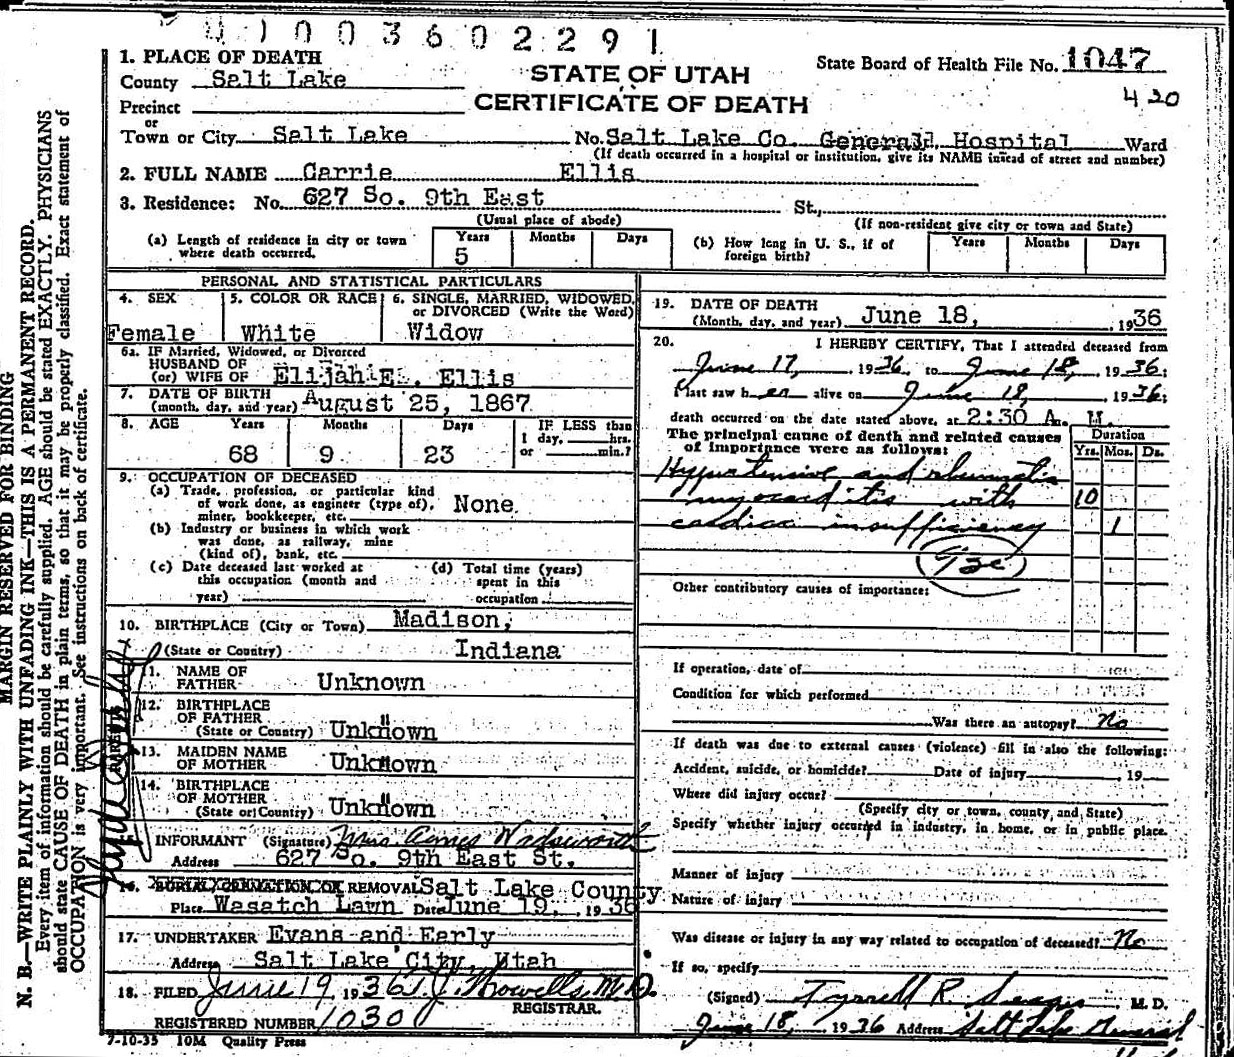 1003602291
1. PLACE OF DEATH
County Salt Lake
Precinct
or
Town or City Salt Lake
STATE OF UTAH
CERTIFICATE OF DEATH
State Board of Health File No. 1047
420
No. Salt Lake Co. General Hospital Ward
(If death occurred in a hospital or institution, give its NAME instead of street and number)
2. FULL NAME Carrie Ellis
3. Residence: No. 627 So. 9th East St.,
(Usual place of abode) (If non-resident give city or town and State)
(a) Length of residence in city or town where death occurred.
Years Months Days
5
(b) How long in U. S., if of foreign birth?
Years Months Days
PERSONAL AND STATISTICAL PARTICULARS
4. SEX
Female
5. COLOR OR RACE
White
6. SINGLE, MARRIED, WIDOWED, or DIVORCED (Write the Word)
Widow
6a. IF Married, Widowed, or Divorced
HUSBAND OF
(or) WIFE OF Elijah E. Ellis
7. DATE OF BIRTH
(month, day, and year) August 25, 1867
8. AGE Years Months Days
68 9 23
IF LESS than
1 day, hrs.
or min.?
9. OCCUPATION OF DECEASED
(a) Trade, profession, or particular kind
of work done, as engineer (type of),
miner, bookkeeper, etc. None
(b) Industry or business in which work
was done, as railway, mine
(kind of), bank, etc.
(c) Date deceased last worked at
this occupation (month and
year)
(d) Total time (years)
spent in this
occupation
10. BIRTHPLACE (City or Town) Madison,
(State or Country) Indiana
11. NAME OF
FATHER Unknown
12. BIRTHPLACE
OF FATHER
(State or Country) Unknown
13. MAIDEN NAME
OF MOTHER Unknown
14. BIRTHPLACE
OF MOTHER
(State or Country) Unknown
INFORMANT (Signature) Mrs Wadsworth
Address 627 So. 9th East St.
16. BURIAL, CREMATION OR REMOVAL Salt Lake County
Place Wasatch Lawn Date June 19, 1936
17. UNDERTAKER Evans and Early
Address Salt Lake City, Utah
18. FILED June 19 1936 T. J. Howells M.D.
REGISTRAR.
REGISTERED NUMBER 1030
7-10-35 10M Quality Press
19. DATE OF DEATH
(Month, day, and year) June 18, 1936
20. I HEREBY CERTIFY, That I attended deceased from
June 17, 1936, to June 18, 1936;
I last saw her alive on June 18, 1936;
death occurred on the date stated above, at 2:30 A. M.
The principal cause of death and related causes
of importance were as follows:
Duration
Yrs. Mos. Ds.
Hypertensive and rheumatic
myocarditis with 10
cardiac insufficiency 1
93c
Other contributory causes of importance:
If operation, date of
Condition for which performed
Was there an autopsy? No
If death was due to external causes (violence) fill in also the following:
Accident, suicide, or homicide? Date of injury 19
Where did injury occur?
(Specify city or town, county, and State)
Specify whether injury occurred in industry, in home, or in public place.
Manner of injury
Nature of injury
Was disease or injury in any way related to occupation of deceased? No
If so, specify
(Signed) Tyrrell R. M. D.
June 18, 1936 Address Salt Lake General
MARGIN RESERVED FOR BINDING
N. B.—WRITE PLAINLY WITH UNFADING INK—THIS IS A PERMANENT RECORD.
Every item of information should be carefully supplied. AGE should be stated EXACTLY. PHYSICIANS
should state CAUSE OF DEATH in plain terms, so that it may be properly classified. Exact statement of
OCCUPATION is very important. See instructions on back of certificate.
PARENTS